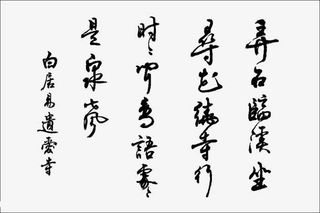 弄石臨溪坐
尋花繞寺行
時時聞鳥語處處
是泉聲
白居易遺愛寺